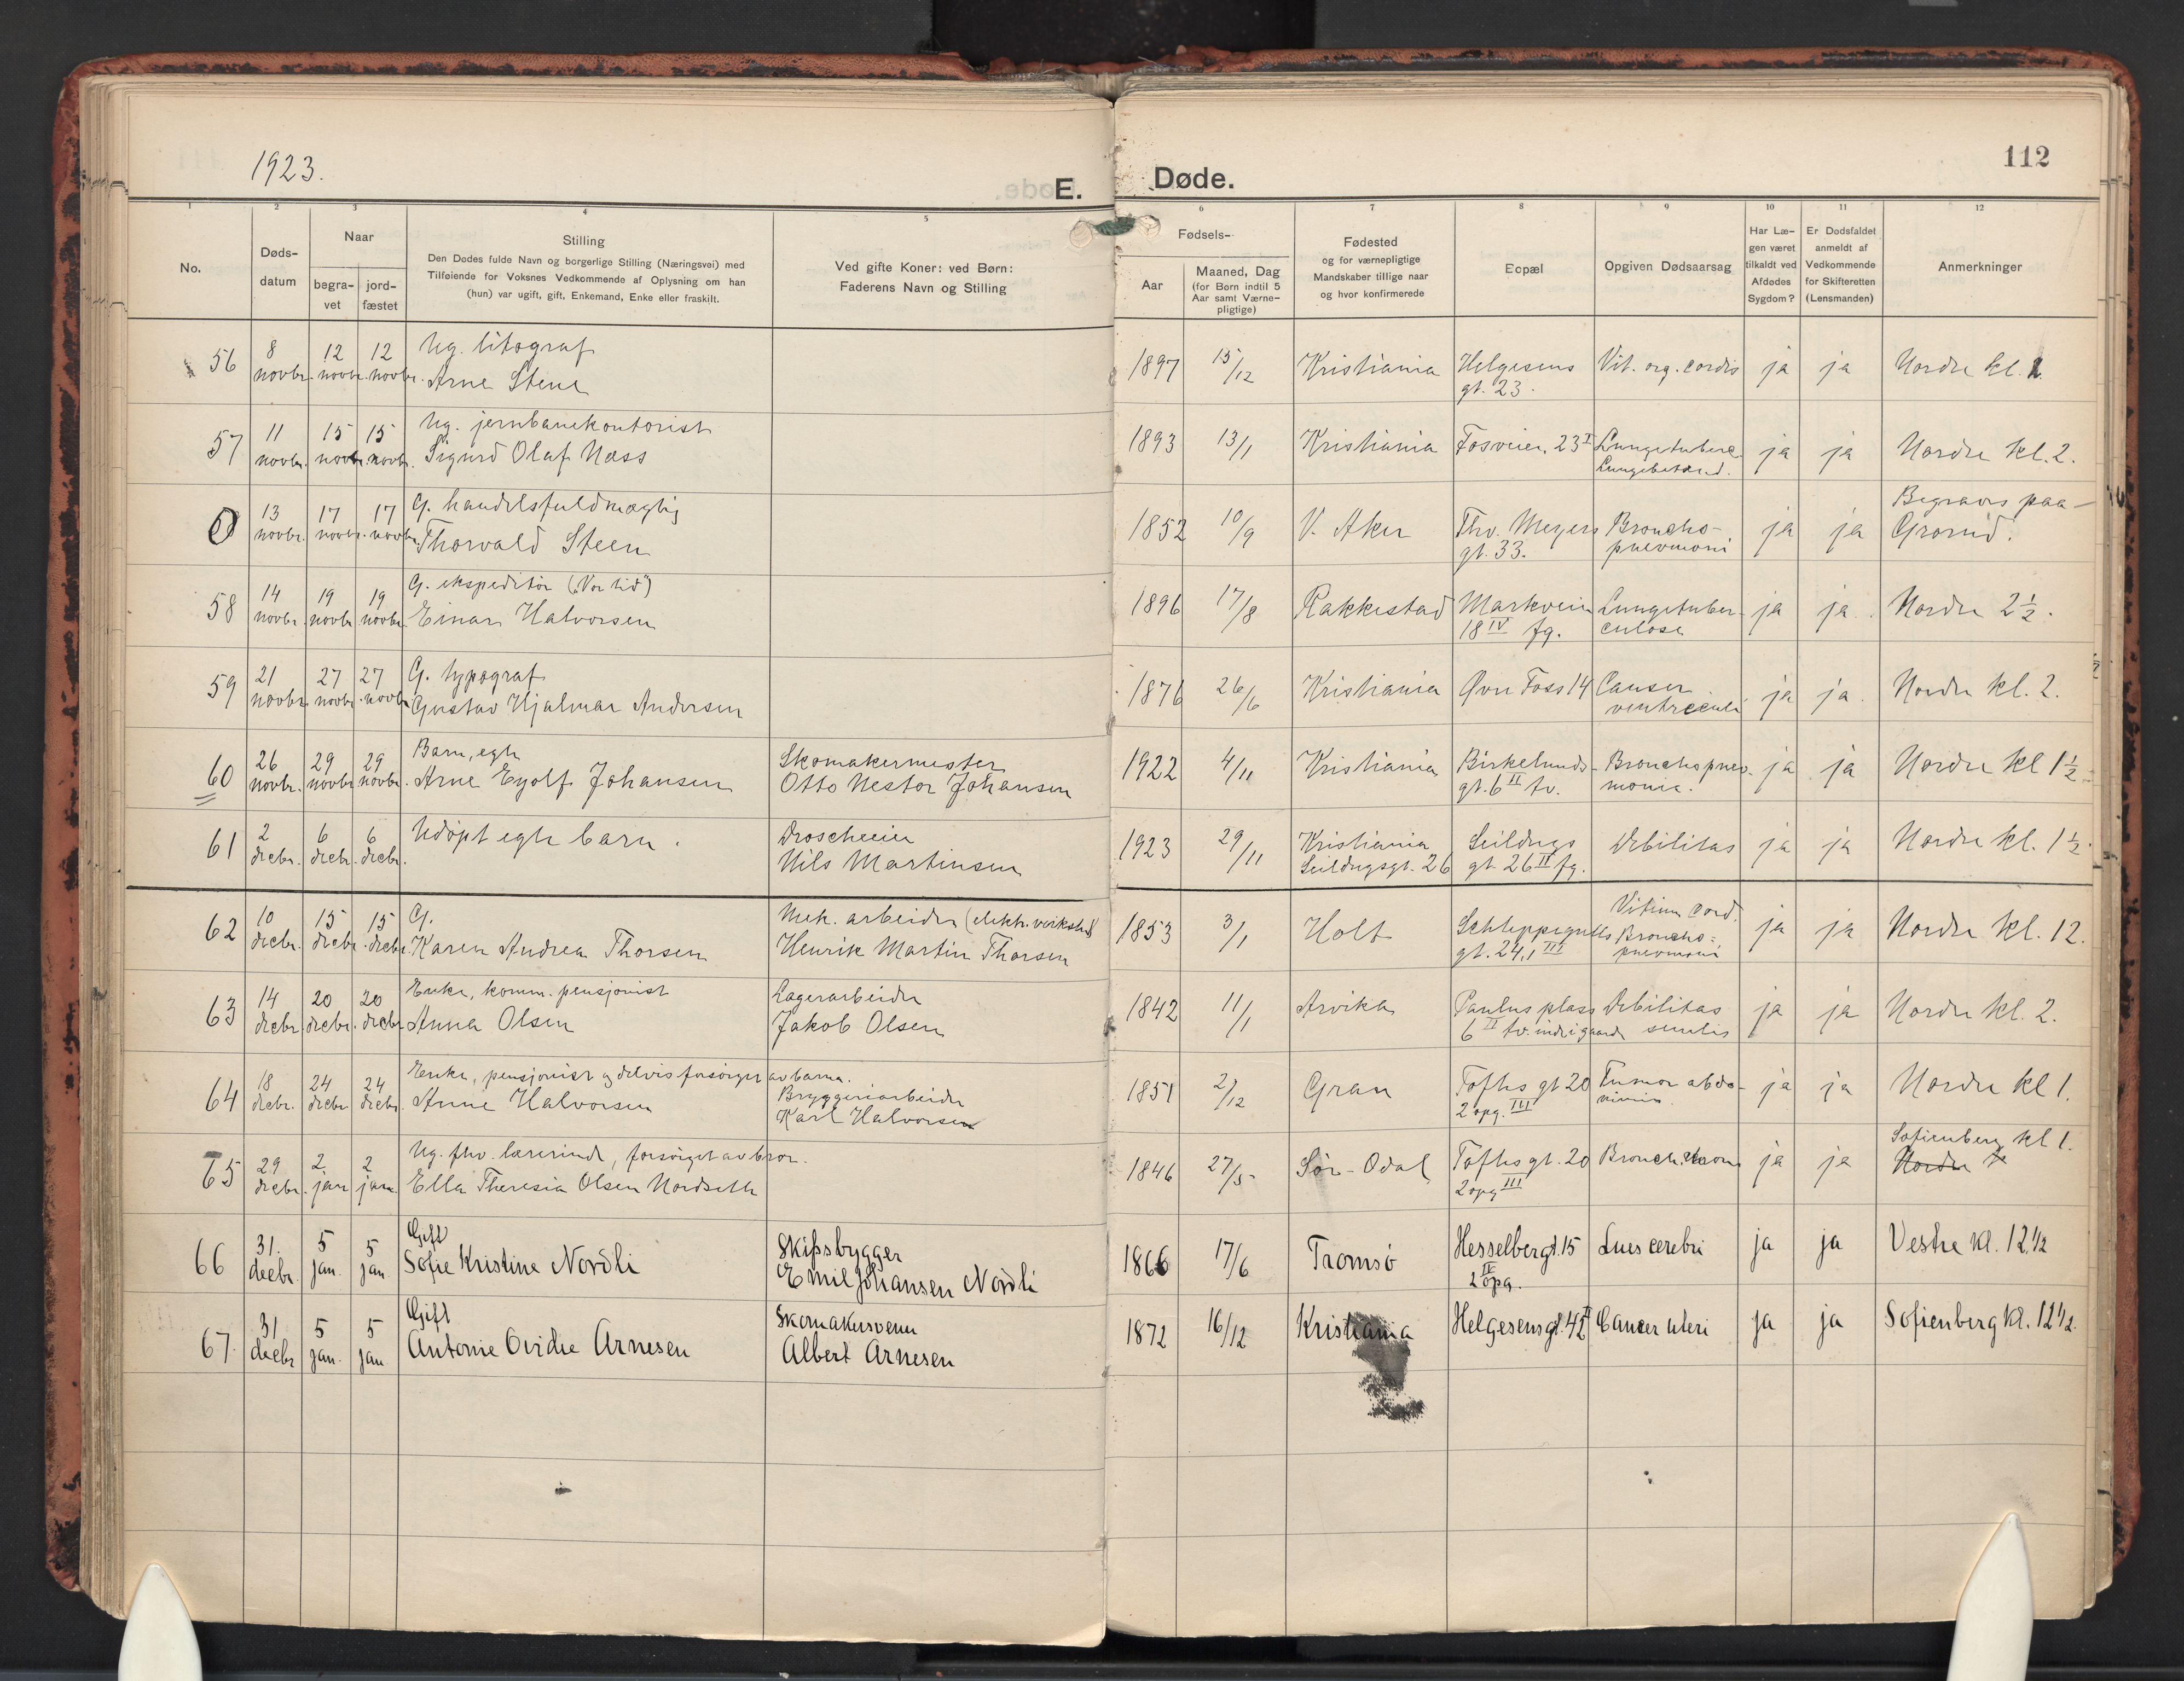 1923.
E. Døde.
112
1 2 3 4 5 6 7 8 9 10 11 12
No.
Døds-
datum
Naar
begra-
vet
jord-
fæstet
Stilling
Den Dødes fulde Navn og borgerlige Stilling (Næringsvei) med
Tilføiende for Voksnes Vedkommende af Oplysning om han
(hun) var ugift, gift, Enkemand, Enke eller fraskilt.
Ved gifte Koner: ved Børn:
Faderens Navn og Stilling
Fødsels-
Aar
Maaned, Dag
(for Børn indtil 5
Aar samt Værne-
pligtige)
Fødested
og for værnepligtige
Mandskaber tillige naar
og hvor konfirmerede
Bopæl
Opgiven Dødsaarsag
Har Læ-
gen været
tilkaldt ved
Afdødes
Sygdom?
Er Dødsfaldet
anmeldt af
Vedkommende
for Skifteretten
(Lensmanden)
Anmerkninger
56 8 novbr. 12 novbr. 12 novbr. Ug. litograf
Arne Stene
1897 15/12 Kristiania Helgesens gt. 23. Vit. org. cordis ja ja Nordre kl. 1.
57 11 novbr. 15 novbr. 15 novbr. Ug. jernbanekontorist
Sigurd Olaf Næss
1893 13/1 Kristiania Fosveien 23 I Lungetuberc. ja ja Nordre kl. 2.
0 13 novbr. 17 novbr. 17 novbr. G. handelsfuldmægtig
Thorvald Steen
1852 10/9 V. Aker Thv. Meyers gt. 33. Broncho-pneumoni ja ja Begraves paa Grorud.
58 14 novbr. 19 novbr. 19 novbr. G. ekspeditør ("Vor tid")
Einar Halvorsen
1896 17/8 Rakkestad Markveien 18 IV fg. Lungetuber-culose ja ja Nordre 2 1/2.
59 21 novbr. 27 novbr. 27 novbr. G. typograf
Gustav Hjalmar Andersen
1876 26/6 Kristiania Øvre Foss 14 Cancer ventriculi ja ja Nordre kl. 2.
60 26 novbr. 29 novbr. 29 novbr. Barn, egte
Arne Eyolf Johansen
Skomakermester
Otto Nestor Johansen
1922 4/11 Kristiania Birkelunds-gt. 6 II tv. Bronchopneu-monia. ja ja Nordre kl 1 1/2
61 2 decbr. 6 decbr. 6 decbr. Udøpt egte barn.
Droscheeier
Nils Martinsen
1923 29/11 Kristiania Seildugsgt. 26 Seildugs gt. 26 II fg. Debilitas ja ja Nordre kl. 1 1/2.
62 10 decbr. 15 decbr. 15 decbr. G.
Karen Andrea Thorsen
Mek. arbeider (elektr. verksted)
Henrik Martin Thorsen
1853 3/1 Holt Schleppegrells gt. 24, 1 III Vitium cord. Broncho-pneumoni ja ja Nordre kl. 12.
63 14 decbr. 20 decbr. 20 decbr. Enke, komm. pensjonist
Anna Olsen
Lagerarbeider
Jakob Olsen
1842 11/1 Arvika Paulus plass 6 II tv. inde i gaard Debilitas senilis ja ja Nordre kl. 2.
64 18 decbr. 24 decbr. 24 decbr. Enke, pensjonist og delvis forsørget av barna.
Anne Halvorsen
Bryggeriarbeider
Karl Halvorsen
1851 2/12 Gran Toftes gt 20 2 opg. III Tumor abdo-minis ja ja Nordre kl 1.
65 29 decbr. 2 jan 2 jan. Ug. fhv. lærerinde, forsørget av bror.
Ella Theresia Olsen Nordseth
1846 27/5 Sør-Odal Toftesgt. 20 2 opg III ja ja Sofienberg kl 1.
Nordre
66 31. decbr. 5 jan. 5 jan. Gift
Sofie Kristine Nordli
Skibsbygger
Emil Johansen Nordli
1866 17/6 Tromsø Hesselbergt. 15 II 2 opg. Lues cerebri ja ja Vestre kl. 12 1/2
67. 31 decbr 5 jan. 5 jan. Gift
Antonie Ovidie Arnesen
Skomakersvenn
Albert Arnesen
1872 16/12 Kristiania Helgesensgt. 42 II Cancer uteri ja ja Sofienberg kl. 12 1/2.